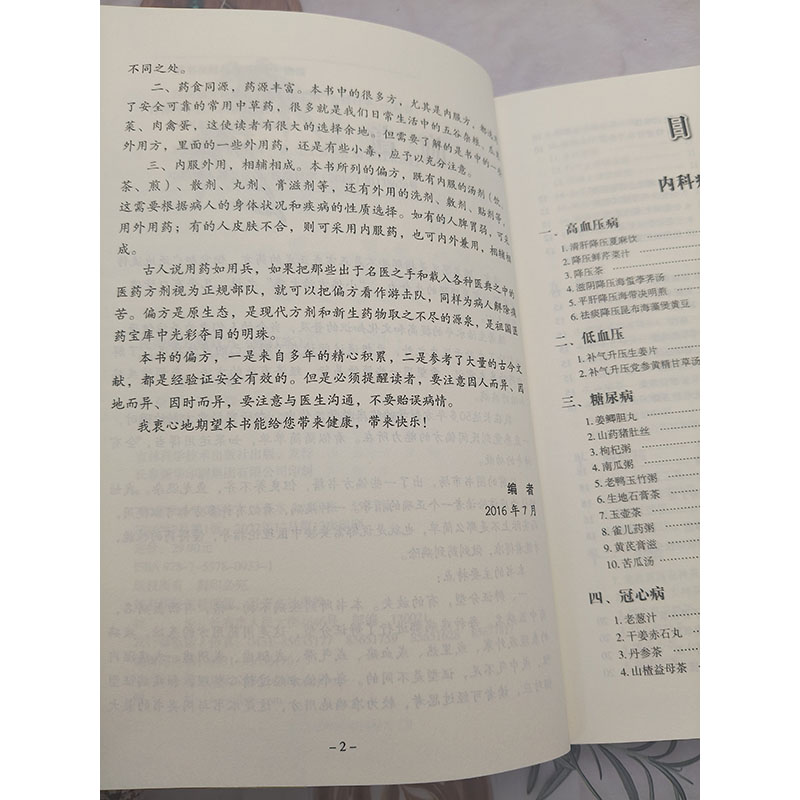 不同之处。
二、药食同源，药源丰富。本书中的很多方，尤其是内服方，都选
了安全可靠的常用中草药，很多就是我们日常生活中的五谷杂粮、瓜果
菜、肉禽蛋，这使读者有很大的选择余地。但需要了解的是书中的一些
外用方，里面的一些外用药，还是有些小毒，应予以充分注意。
三、内服外用，相辅相成。本书所列的偏方，既有内服的汤剂（饮、
茶、煎）、散剂、丸剂、膏滋剂等，还有外用的洗剂、敷剂、贴剂等。
这需要根据病人的身体状况和疾病的性质选择。如有的人脾胃弱，可采
用外用药；有的人皮肤不合，则可采用内服药，也可内外兼用，相辅相
成。
古人说用药如用兵，如果把那些出于名医之手和载入各种医典之中的
医药方剂视为正规部队，就可以把偏方看作游击队，同样为病人解除痛
苦。偏方是原生态，是现代方剂和新生药物取之不尽的源泉，是祖国医
药宝库中光彩夺目的明珠。
本书的偏方，一是来自多年的精心积累，二是参考了大量的古今文
献，都是经验证安全有效的。但是必须提醒读者，要注意因人而异、因
地而异、因时而异，要注意与医生沟通，不要贻误病情。
我衷心地期望本书能给您带来健康，带来快乐！
编 者
2016年7月
－2－
目
内科
一、高血压病
1.清肝降压夏麻饮
2.降压鲜芹菜汁
3.降压茶
4.滋阴降压海雪荸荠汤
5.平肝降压海带决明煎
6.祛痰降压昆布海藻煲黄豆
二、低血压
1.补气升压生姜片
2.补气升压党参黄精甘草汤
三、糖尿病
1.姜鲫胆丸
2.山药猪肚丝
3.枸杞粥
4.南瓜粥
5.老鸭玉竹粥
6.生地石膏茶
7.玉壶茶
8.雀儿药粥
9.黄芪膏滋
10.苦瓜汤
四、冠心病
1.老葱汁
2.干姜赤石丸
3.丹参茶
4.山楂益母茶